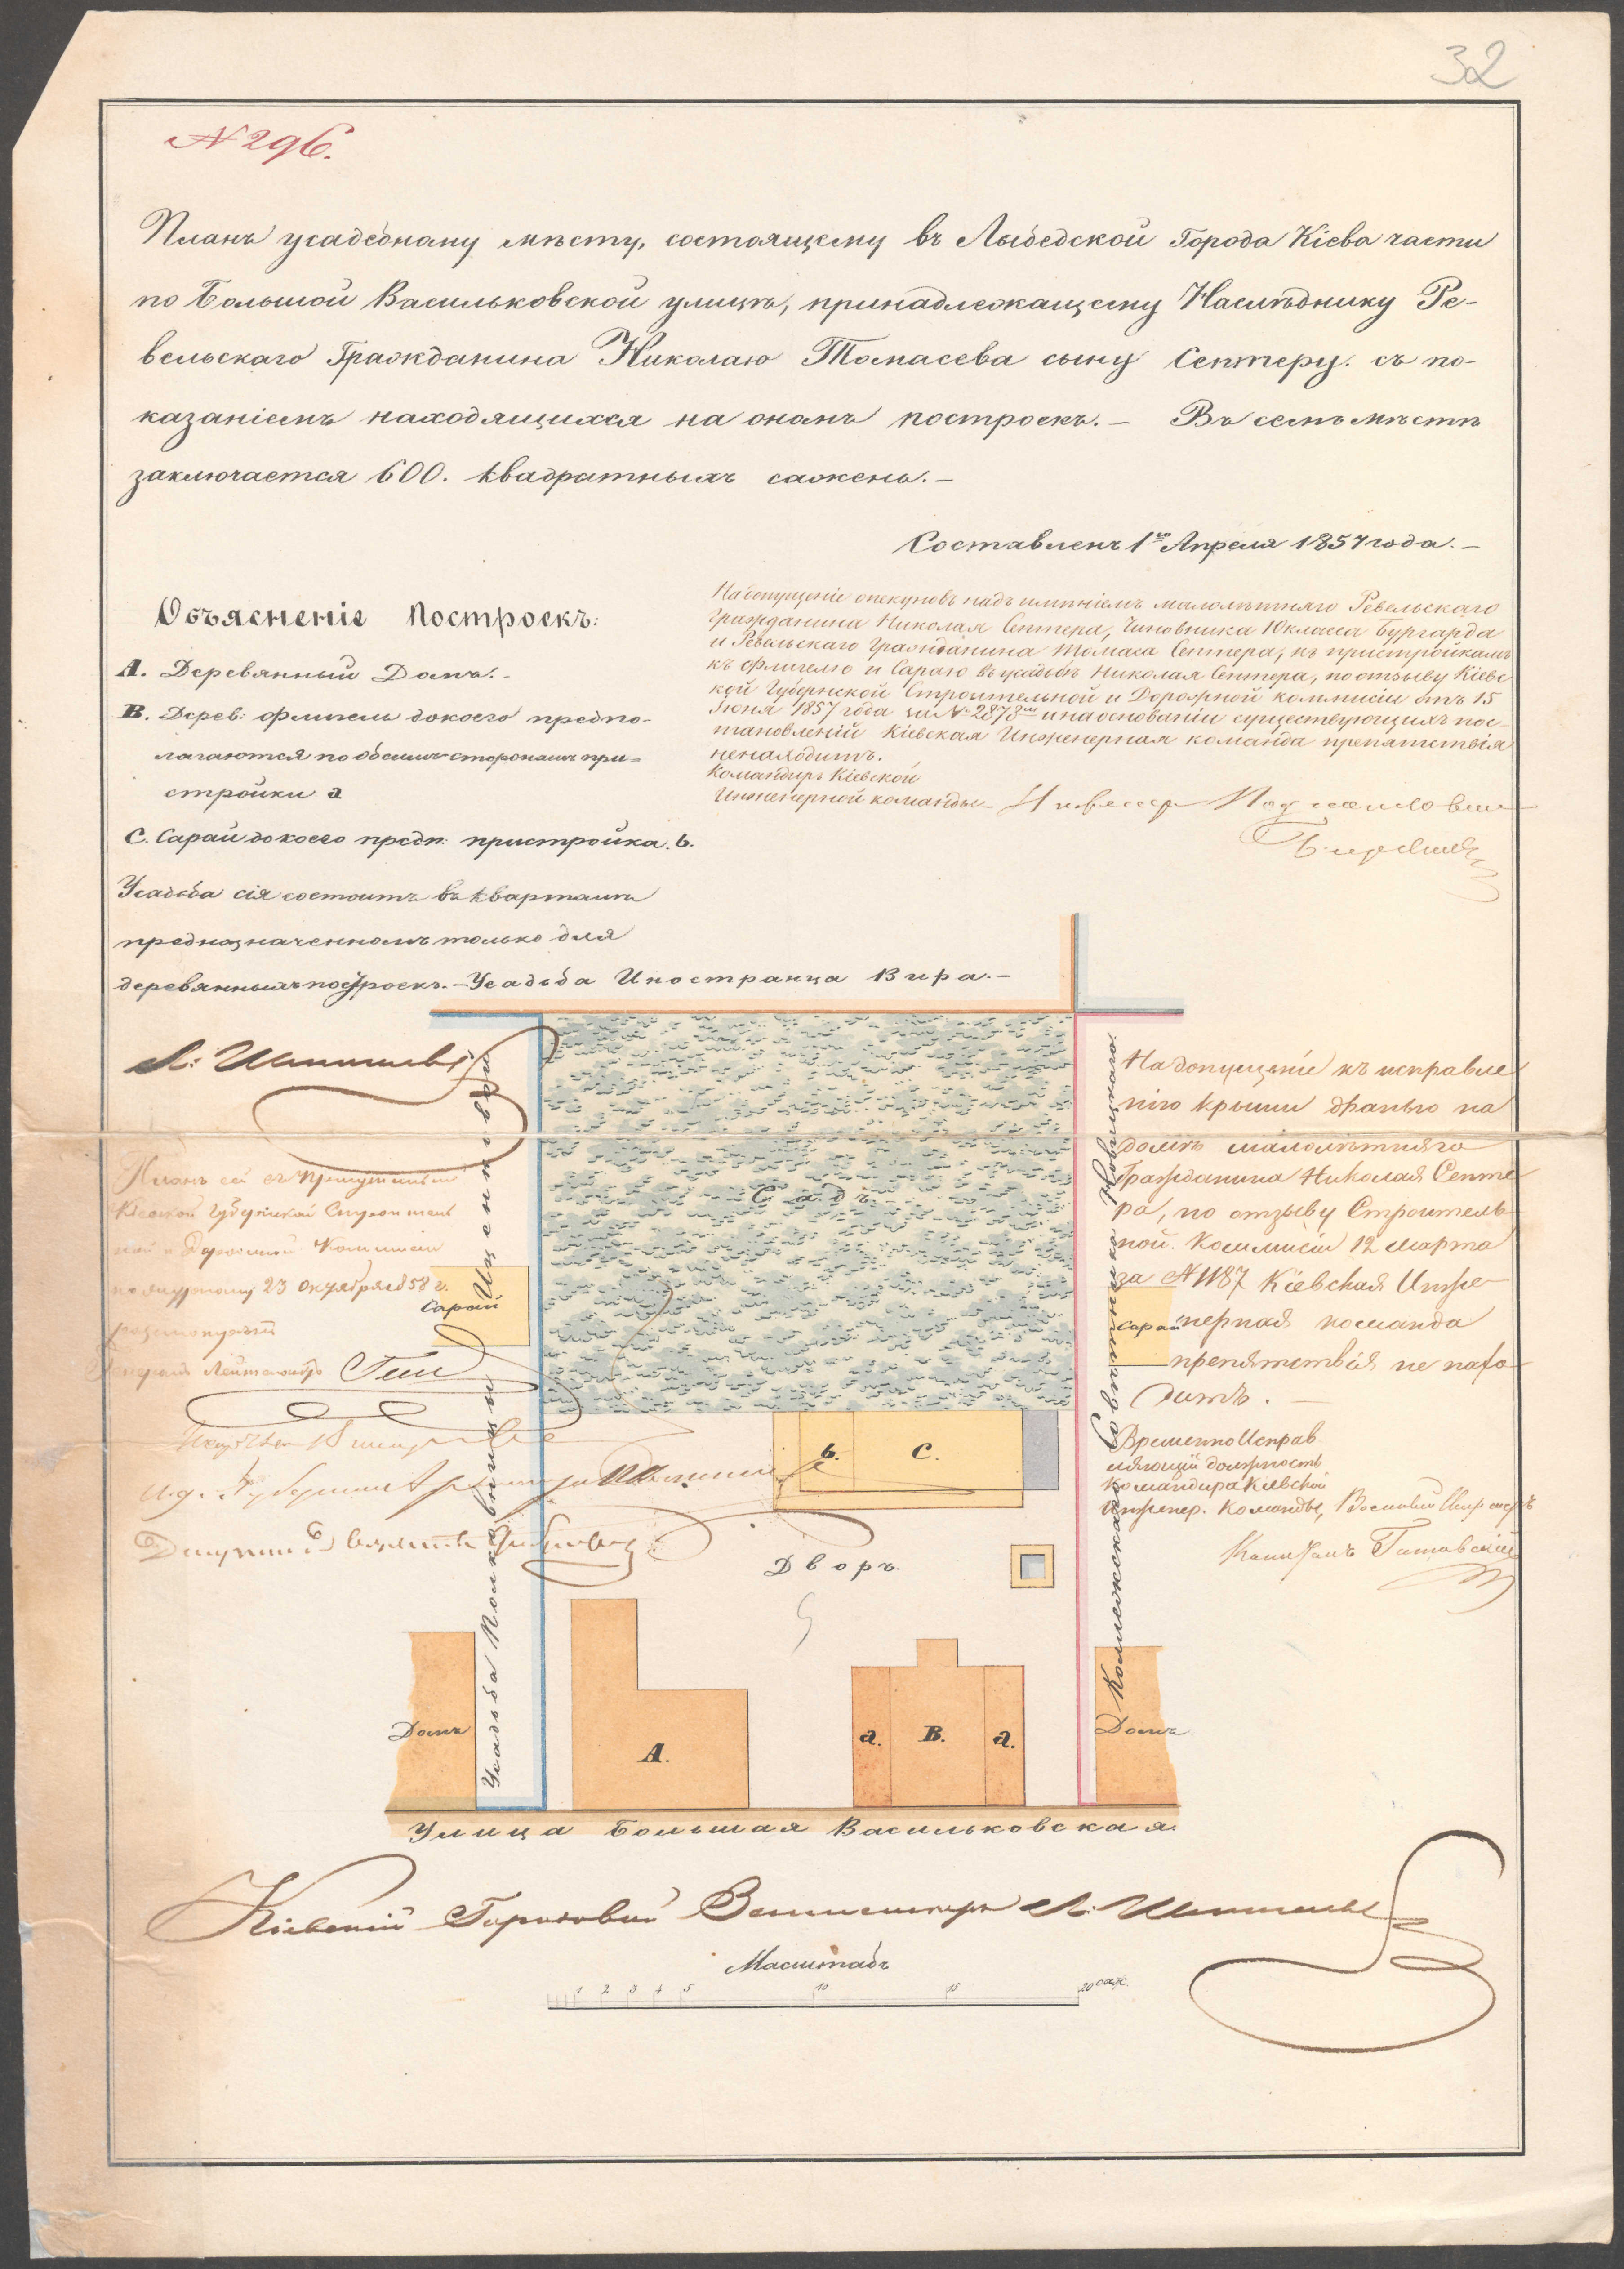 32
N 296.
Планъ усадебному мѣсту, состоящему въ Лыбедской Города Кіева части
по Большой Васильковской улицѣ, принадлежащему Наслѣднику Ре-
вельскаго Гражданина Николаю Томасева сыну Септеру. съ по-
казаніемъ находящихся на ономъ построекъ.– Въ семъ мѣстѣ
заключается 600. квадратныхъ сажень.–
Составленъ 1го Апреля 1857 года.–
Объясненіе Построекъ:
А. Деревянный Домъ.–
В. Дерев: флигель до коего предпо-
лагаются по обеимъ сторонамъ при=
стройки а
С. Сарай до коего предп: пристройка. b.
Усадьба сія состоитъ въ кварталѣ
предназначенномъ только для
деревянныхъ построекъ.–
На допущеніе опекуновъ надъ имѣніемъ малолѣтняго Ревельскаго
гражданина Николая Септера, Чиновника 10 класса Бургарда
и Ревельскаго Гражданина Томаса Септера, къ пристройкамъ
къ флигелю и Сараю въ усадьбѣ Николая Септера, по отзыву Кіевс
кой Губернской Строительной и Дорожной коммисіи отъ 15
Іюня 1857 года за № 2878 и на основаніи существующихъ пос-
тановленій Кіевская Инженерная команда препятствія
ненаходитъ.
Командиръ Кіевской
Инженерной команды
Усадьба Иностранца Вира.–
Л: Шмигель
Планъ сей въ Присутствіи
Кіевской Губернской Строитель
ной и Дорожной Коммисіи
23 Октября 1858 г.
Генералъ Лейтенантъ
Усадьба Полковницы
Сарай
Садъ
На допущеніе къ исправле
нію крыши дранью на
домѣ малолѣтняго
Гражданина Николая Септе
ра, по отзыву Строитель
ной Коммисіи 12 Марта
за N 1187 Кіевская Инже
нерная команда
препятствія не нахо
дитъ.–
Временно Исправ
ляющій должность
командира Кіевской
Инженер. команды,
Капитанъ
Сарай
Усадьба Коллежскаго Совѣтника
b.
С.
Дворъ.
Домъ
А.
а.
В.
а.
Домъ
Улица Большая Васильковская.
Кіевскій Городовой
Масштабъ
1 2 3 4 5 10 15 20 саж.